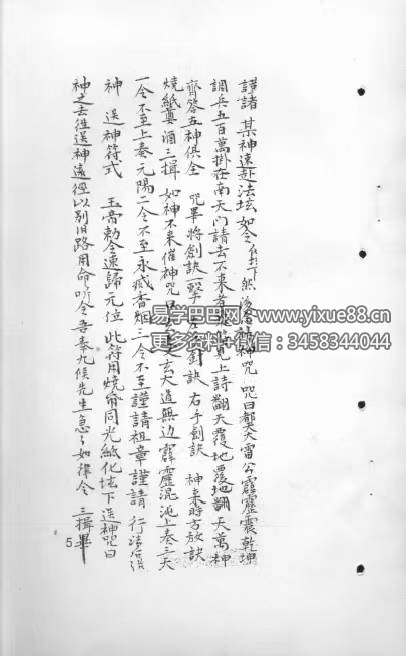 謹請 某神速赴法坛 如令 然後念請神咒 咒曰都天大雷公霹靂震乾坤
調兵五百萬掛在南天门請去不来者 上詩翻天覆地覆地翻天萬神
齊答五神俱全 咒畢將劍訣一擊 劍訣 右手劍訣 神来時方放訣
燒紙奠酒三揖 如神不来催神咒曰 玄大道無边霹靂混沌上奏三天
一令不至上奏元陽二令不至永滅香烟三令不至謹請祖章謹請 行法后滾
神 送神符式 玉帝勅令速歸元位 此符用燒命同光紙化坛下 送神咒曰
神之去往送神遠徑以别旧路用命听令吾奉九候先生急急如律令 三揖畢
易学巴巴网 www.yixue88.cn
更多资料+微信：3458344044
5